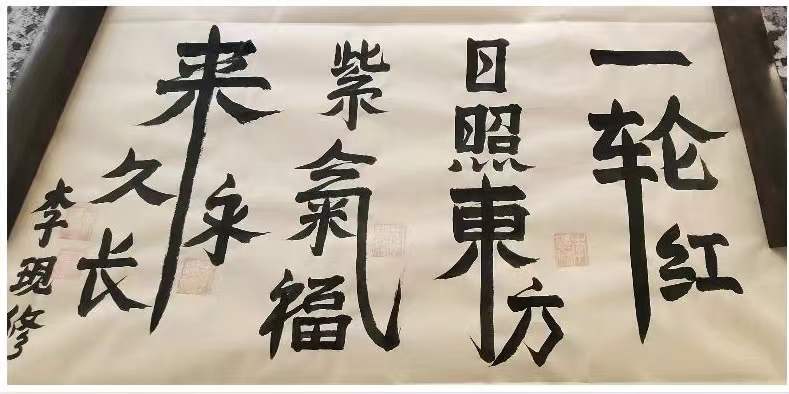 一轮红
日照東方
紫氣福
来永久长
李現修